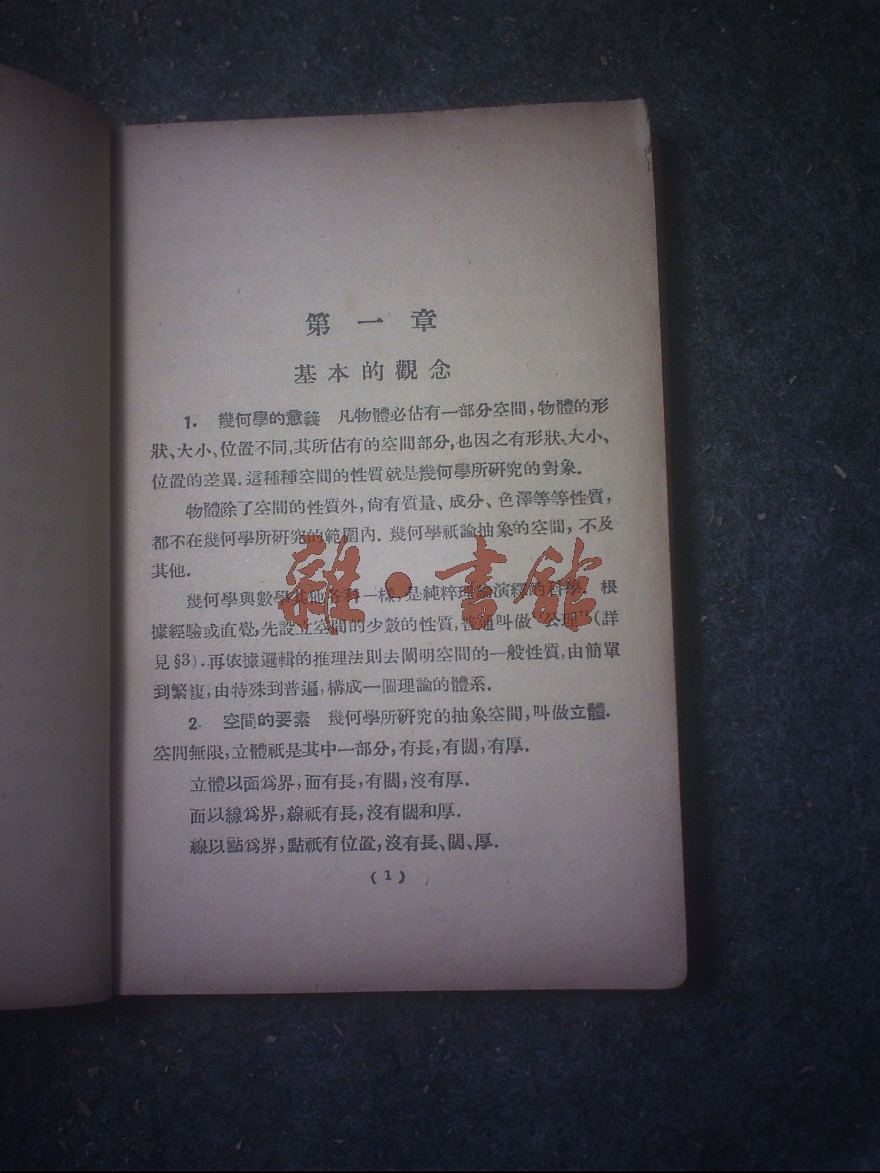 第一章
基本的觀念
1. 幾何學的意義 凡物體必佔有一部分空間,物體的形
狀、大小、位置不同,其所佔有的空間部分,也因之有形狀、大小、
位置的差異.這種種空間的性質就是幾何學所研究的對象.
物體除了空間的性質外,尙有質量、成分、色澤等等性質,
都不在幾何學所研究的範圍內.幾何學祇論抽象的空間,不及
其他.
雜·書館
幾何學與數學其他各科一樣,是純粹理論演繹的科學.根
據經驗或直覺,先設立空間的少數的性質,普通叫做“公理”(詳
見§3).再依據邏輯的推理法則去闡明空間的一般性質,由簡單
到繁複,由特殊到普遍,構成一個理論的體系.
2. 空間的要素 幾何學所研究的抽象空間,叫做立體.
空間無限,立體祇是其中一部分,有長,有闊,有厚.
立體以面爲界,面有長,有闊,沒有厚.
面以線爲界,線祇有長,沒有闊和厚.
線以點爲界,點祇有位置,沒有長、闊、厚.
(1)